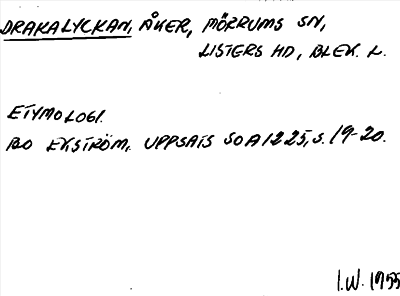 DRAKALYCKAN, ÅKER, MÖRRUMS SN,
LISTERS HD, BLEK. L.
ETYMOLOGI.
BO EKSTRÖM, UPPSATS SOA 1225, S. 19-20.
I.W. 1955